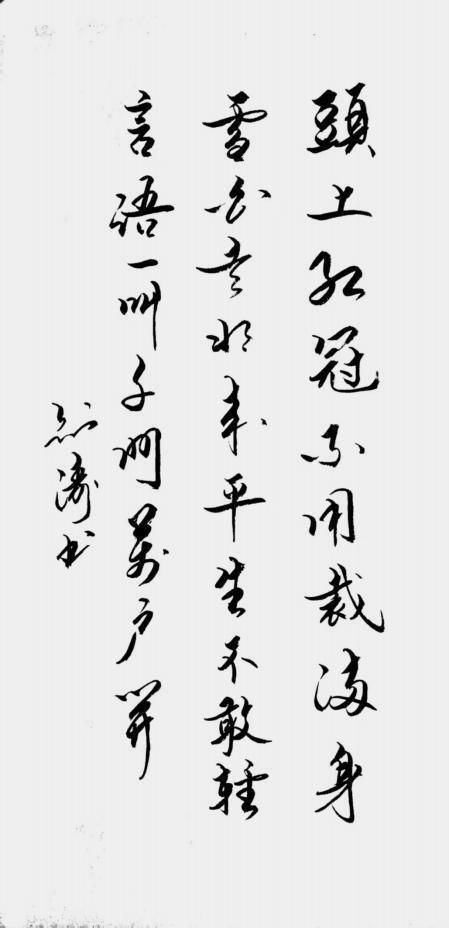 頭上紅冠不用裁滿身
雪白走將來平生不敢輕
言語一叫千門萬戶開
濤书